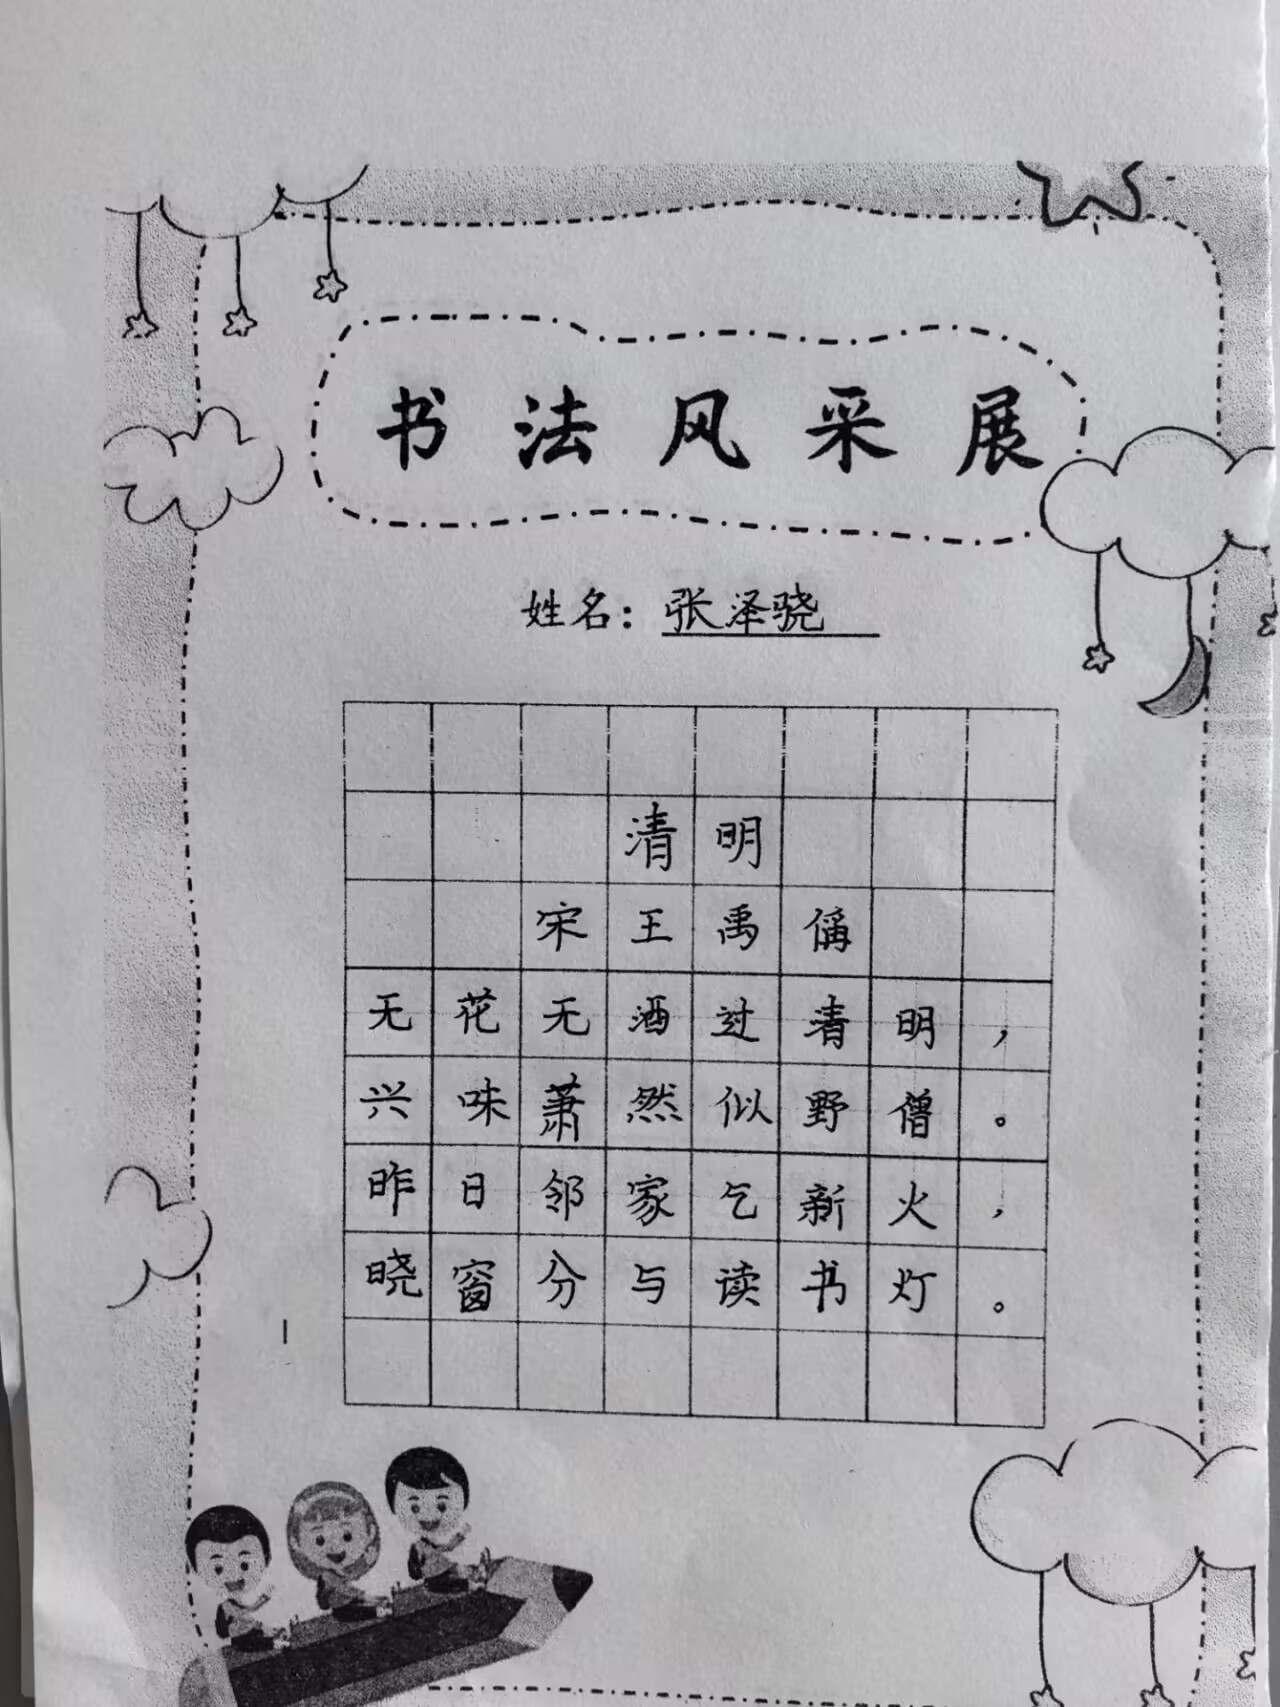 书法风采展
姓名：张泽骁
清明
宋王禹偁
无花无酒过清明，
兴味萧然似野僧。
昨日邻家乞新火，
晓窗分与读书灯。